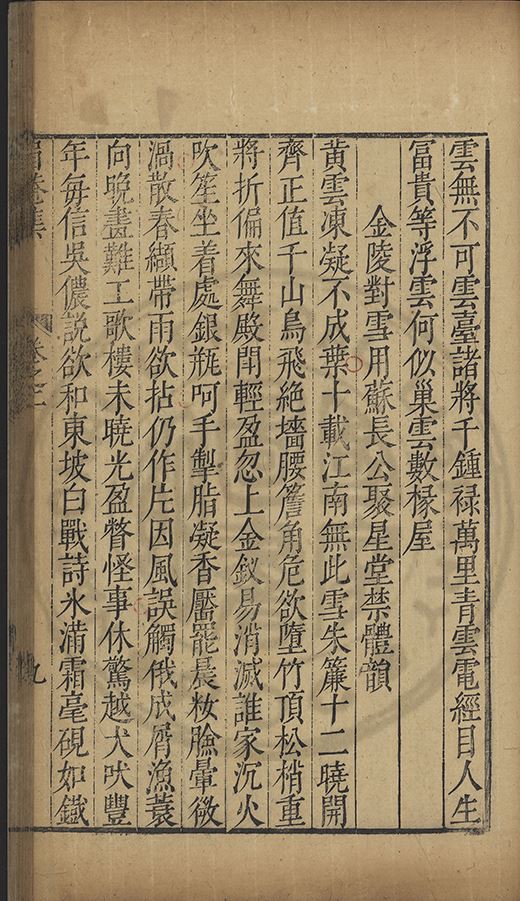 雲無不可雲臺諸將千鍾禄萬里青雲電經目人生
富貴等浮雲何似巢雲數椽屋
金陵對雪用蘇長公聚星堂禁體韻
黄雲凍凝不成葉十載江南無此雪朱簾十二曉開
齊正值千山鳥飛絶墻腰簷角危欲墮竹頂松梢重
將折偏來舞殿閈輕盈忽上金釵易消滅誰家沉火
吹笙坐着處銀瓶呵手掣脂凝香靨罷晨粧臉暈微
渦散春纈帶雨欲拈仍作片因風誤觸俄成屑漁蓑
向晚畫難工歌樓未曉光盈瞥怪事休驚越犬吠豐
年毎信吳儂説欲和東坡白戰詩氷滿霜毫硯如鐡
卷之二
九